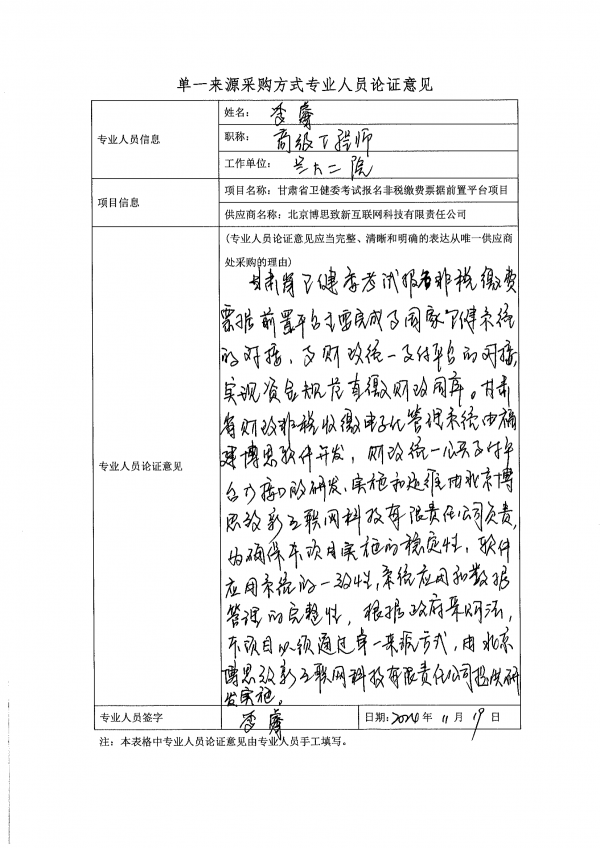 单一来源采购方式专业人员论证意见
专业人员信息
姓名：李睿
职称：高级工程师
工作单位：兰大二院
项目信息
项目名称：甘肃省卫健委考试报名非税缴费票据前置平台项目
供应商名称：北京博思致新互联网科技有限责任公司
专业人员论证意见
(专业人员论证意见应当完整、清晰和明确的表达从唯一供应商
处采购的理由)
甘肃省卫健委考试报名非税缴费
票据前置平台主要完成了国家卫健系统
的对接，及财政统一支付平台的对接，
实现资金规范直缴财政国库。甘肃
省财政非税收缴电子化管理系统由福
建博思软件开发，财政统一公共支付平
台接口的研发、实施和运维由北京博
思致新互联网科技有限责任公司负责，
为确保本项目实施的稳定性，软件
应用系统的一致性，系统应用和数据
管理的完整性，根据政府采购法，
本项目必须通过单一来源方式，由北京
博思致新互联网科技有限责任公司提供研
发实施。
专业人员签字
李睿
日期：2024年11月19日
注：本表格中专业人员论证意见由专业人员手工填写。